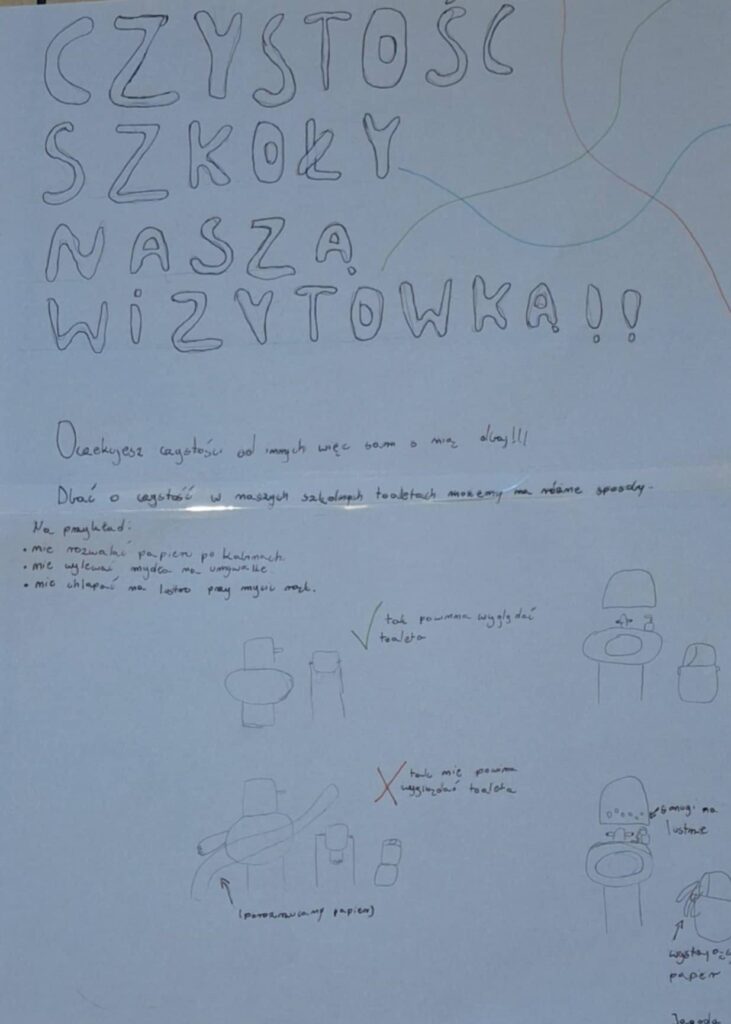 CZYSTOŚĆ
SZKOŁY
NASZĄ
WIZYTÓWKĄ!!
Oczekujesz czystości od innych więc sam o nią dbaj!!!
Dbać o czystość w naszych szkolnych toaletach możemy na różne sposoby.
Na przykład:
• nie rozwalać papieru po kabinach.
• nie wylewać mydła na umywalkę.
• nie chlapać na lustro przy myciu rąk.
tak powinna wyglądać
toaleta
tak nie powinna
wyglądać toaleta
smugi na
lustrze
(porozrzucany papier)
papier
Jagoda